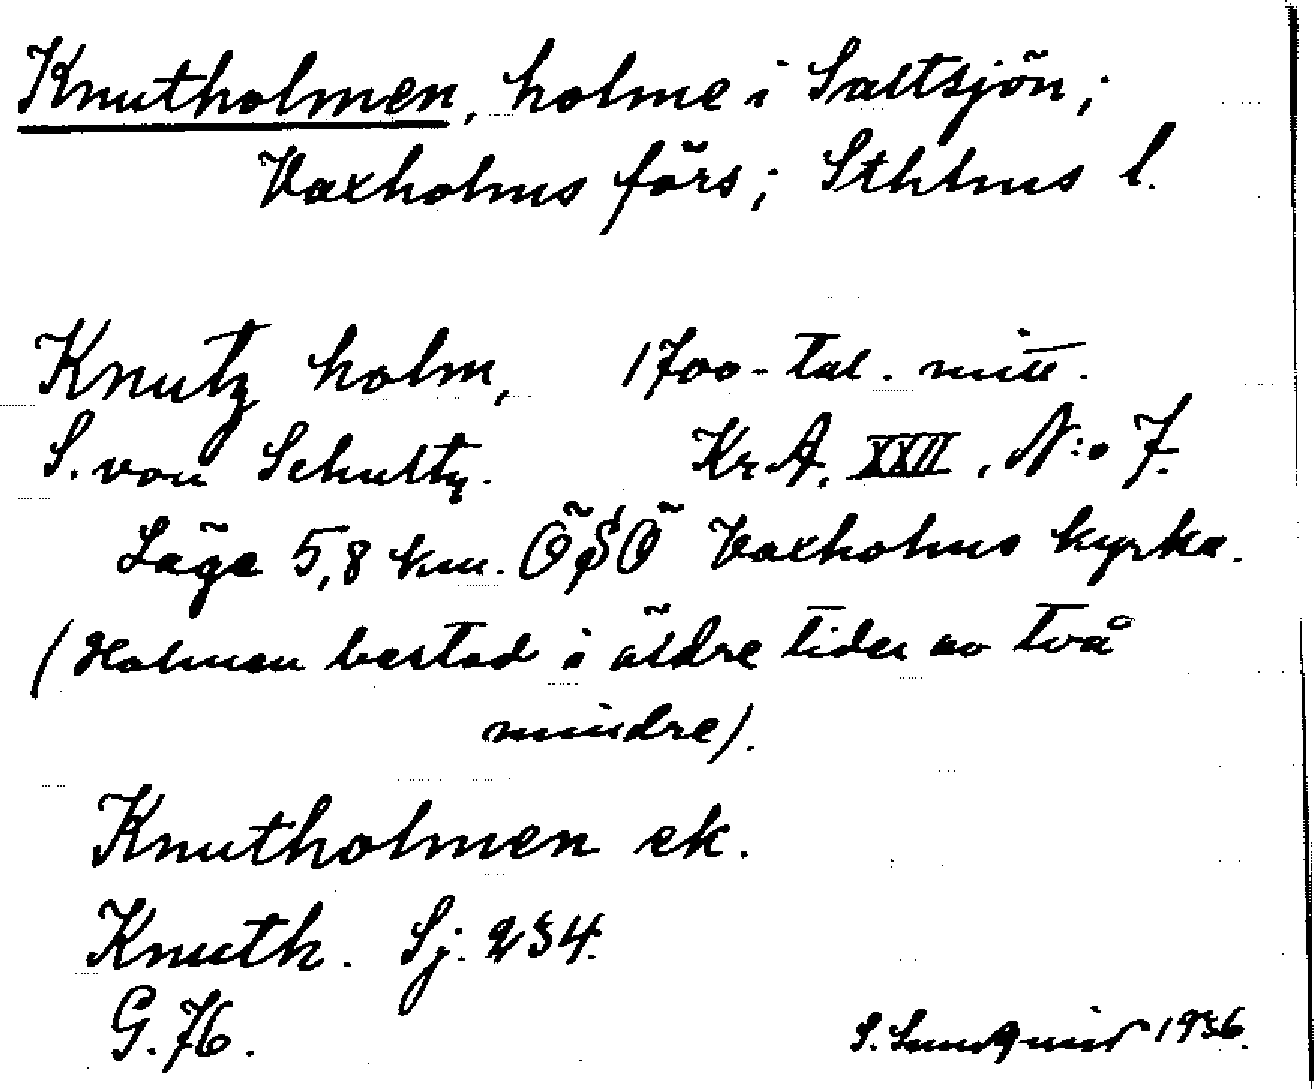 Knutholmen, holme i Saltsjön;
Vaxholms förs; Sthlms l.
Knutz holm, 1700-tal. mitt.
S. von Schultz. Kr.A. XXII, N:o 7.
Läge 5,8 km. ÖSÖ Vaxholms kyrka.
(Holmen bestod i äldre tider av två
mindre).
Knutholmen ek.
Knuth. Sj. 234.
G. 76.
S. Sundquist 1936.